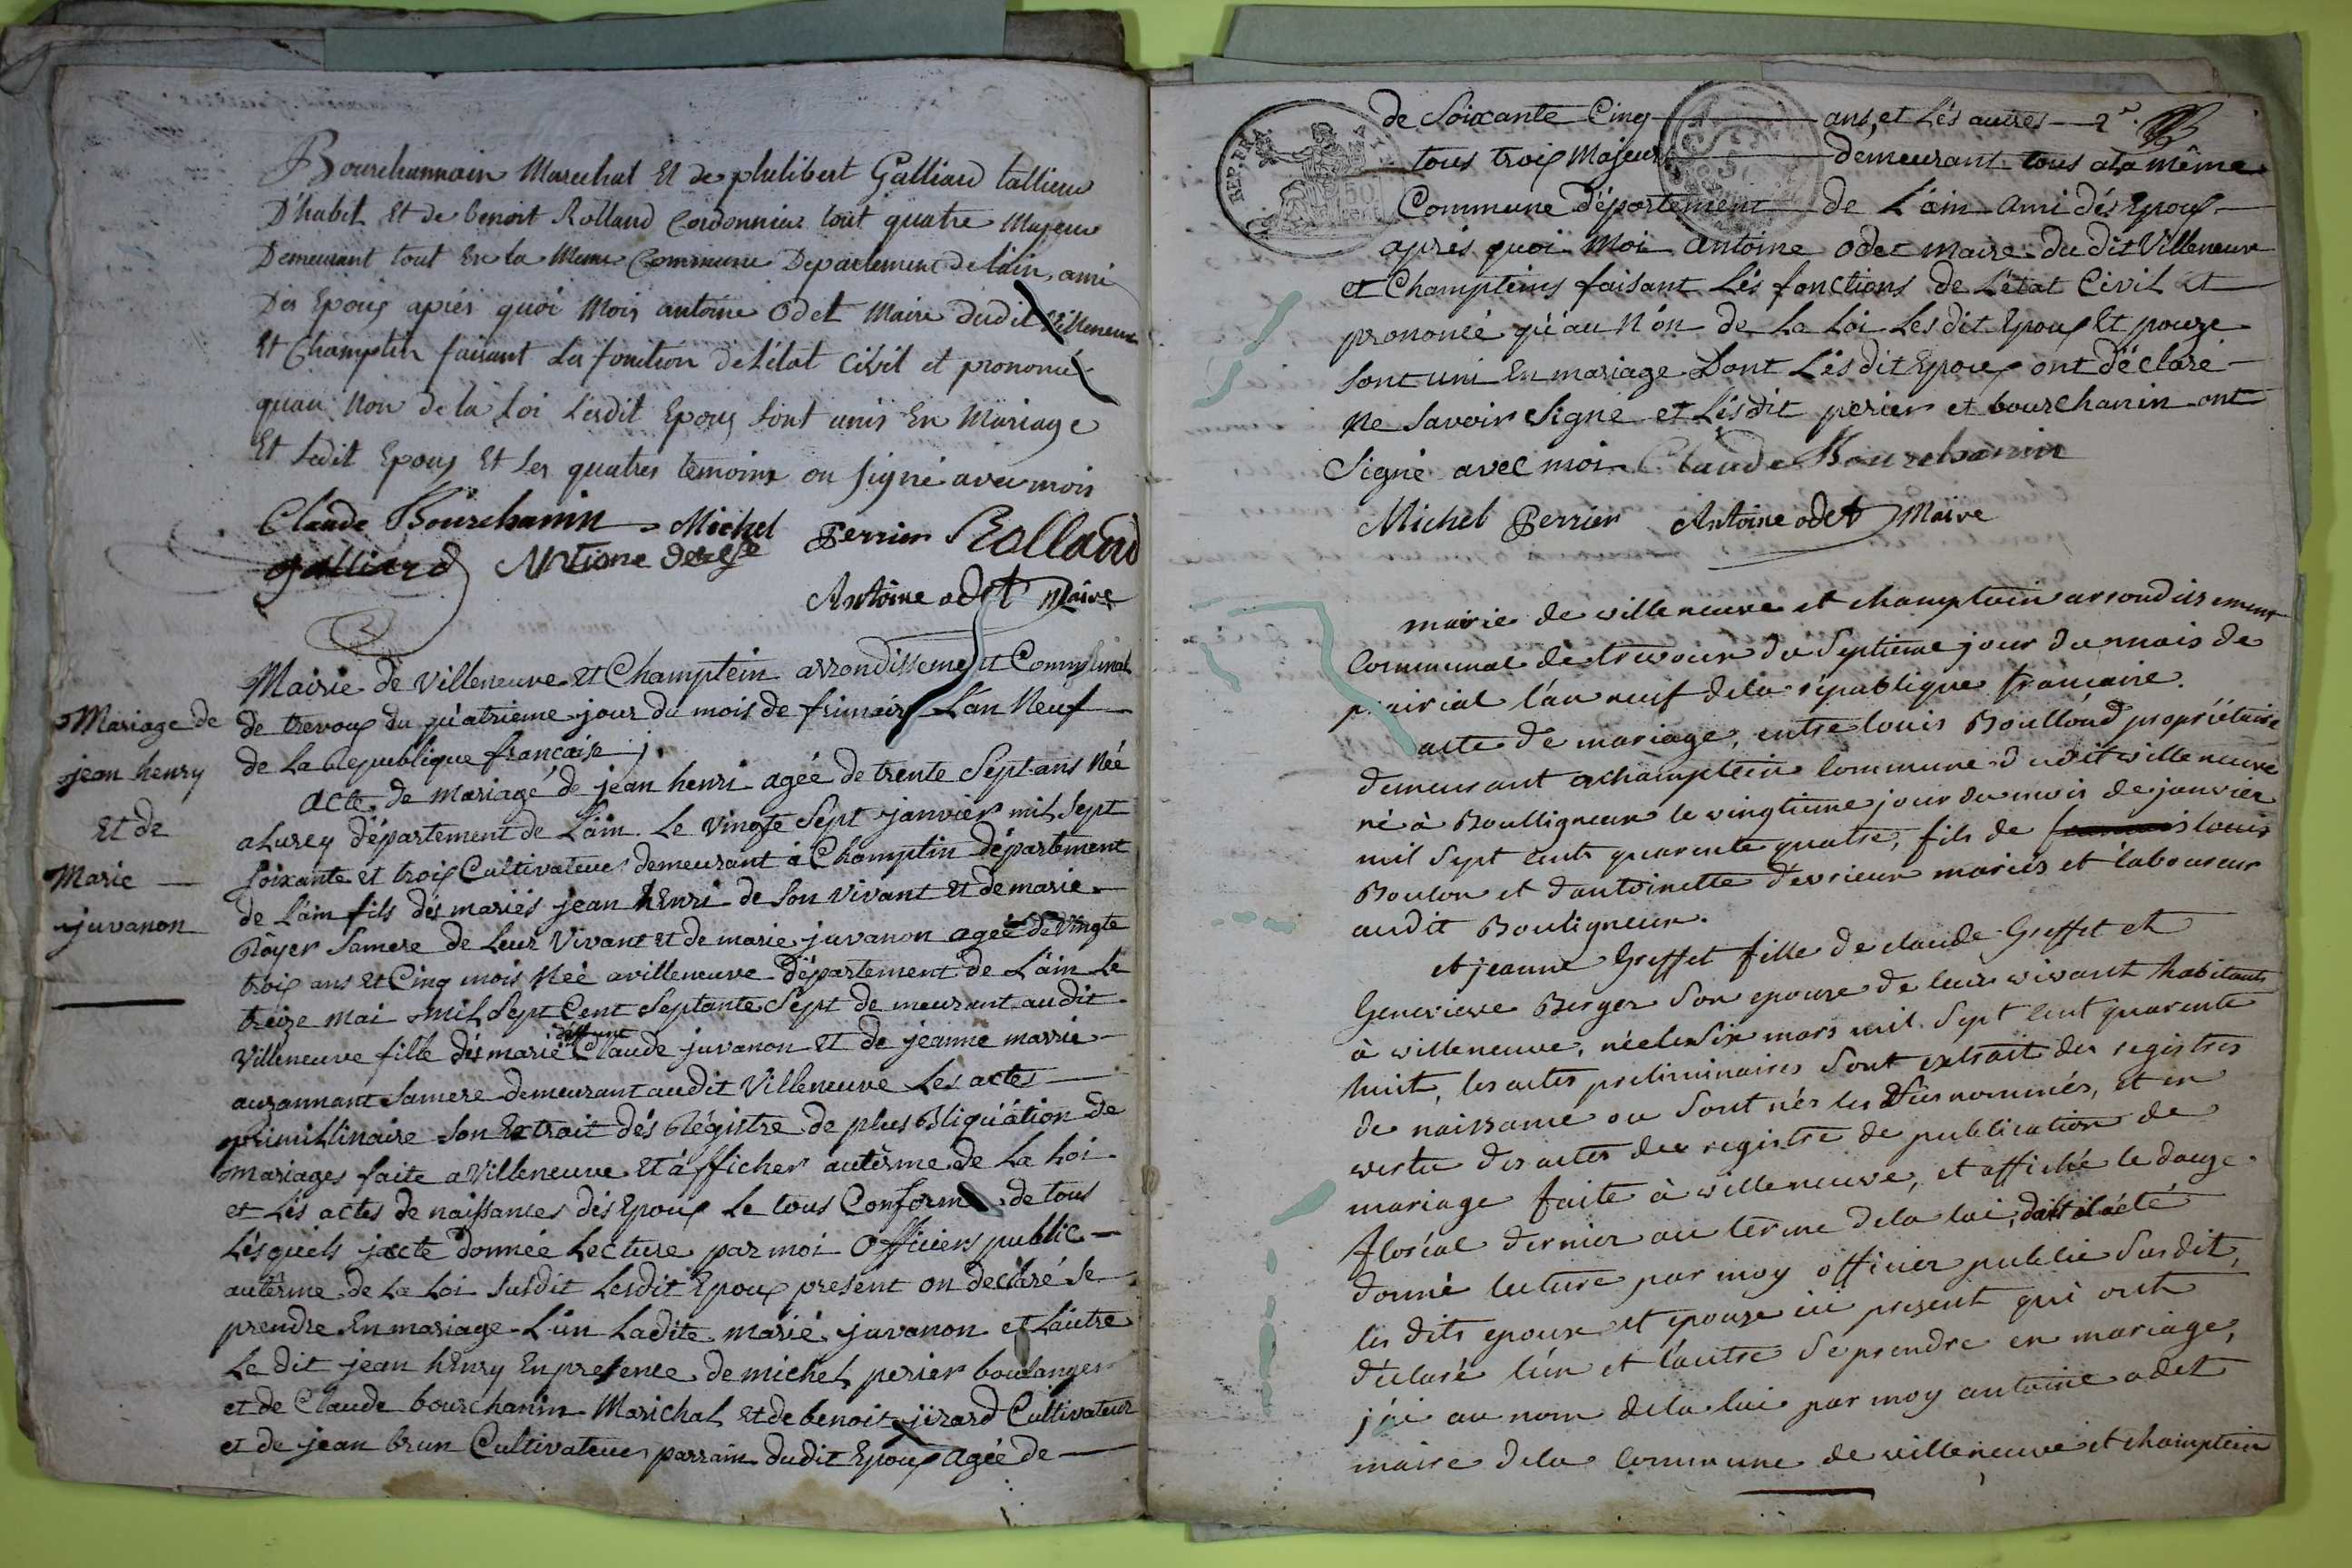 Bourchannain Marechal Et de philibert Galliard tallieur
D'habit Et de benoit Rolland Cordonnier tout quatre Majeur
Demeurant tout En la Meme Commune Departement de lain, ami
Des Epoux après quoi Mois antoine Odet Maire dudit Villeneuve
Et Champtin faisant Les fonction de L'état Civil et prononcé
quau Non de la Loi Lesdit Epoux Sont unis En Mariage
Et Ledit Epoux Et Les quatres temoins on signé avec mois
Claude Bourchanin Michel Perrier Rolland
galliard
Antoine odet Maire
Mairie de Villeneuve Et Champtein arrondissement Communal
de trevoux du quatrieme jour du mois de frimair L'an Neuf
de La Republique francaise
Mariage de
jean henry
Et de
Marie
juvanon
acte de mariagé de jean henri agée de trente Sept ans Née
a Lurcy département de L'ain Le Vingte Sept janvier mil Sept
Soixante et troix Cultivateur demeurant à Champtin département
de L'ain fils dés mariés jean hEnri de Son Vivant Et de marie
Rôyer Samere de Leur Vivant Et de marie juvanon agée de Vingte
troix ans Et Cinq mois Neé avilleneuve département de L'ain Le
treize mai mil Sept Cent Septante Sept de meurant audit
Villeneuve fille dés marié défunt Claude juvanon Et de jeanne marrie
auzannant Samere demeurant audit Villeneuve Les actes
primillinaire Son Extrait dés Régistre de plus Bliquâtion de
mariages faite a Villeneuve Et àfficher autèrme de La Loi
et Lés actes de naissances dés Epoux Le tous Conforme de tous
Lésquels jacte donnée Lecture par moi Officiers public
autèrme de La Loi Susdit Lesdit Epoux present on declaré Se
prendre En mariage L'un Ladite marié juvanon et Lautre
Le dit jean hEnry En presence de michel perier boulanger
et de Claude bourchanin Marichal Et de benoit jirard Cultivateur
et de jean brun Cultivateur parrain dudit Epoux Agée de
REP. FRA
50
de Soixante Cinq ans, et Lés autres
tous troix Majeur demeurant tous a la même
Commune département de L'ain ami dés Epoux
aprés quoi Moi antoine odet maire du dit Villeneuve
et Champteins faisant Lés fonctions de L'état Civil et
prononcé qu'au Nón de La Loi Les dit Epoux Et pouze
Sont uni En mariage Dont Lés dit Epoux ont déclaré
Ne Savoir Signe et Lésdit perier et bourchanin ont
Signé avec moi Claude Bourchanin
Michel Perrier Antoine odet Maire
mairie de villeneuve et champtein arrondissement
Communal de trevoux du Septieme jour du mois de
prairial l'an neuf dela république francaise.
acte de mariage, entre louis Boullond propriétaire
demeurant a champtein Commune dudit villeneuve
né à Boulligneux le vingtieme jour du mois de janvier
mil Sept cents quarente quatre, fils de francois louis
Boulon et d'antoinette devrieux mariés et laboureur
audit Bouligneux.
et jeanne Greffet fille de claude Greffet et
Genevieve Berger Son epouse de leur vivant habitants
à villeneuve, née le Six mars mil Sept Cent quarente
huit, les actes preliminaires Sont extrait des registres
de naissance ou Sont nés les Susnommés, et en
vertu des actes des registre de publication de
mariage faite à villeneuve, et affiché le douze
floréal dernier au terme dela loi, dont il á été
donné lecture par moy officier public Susdit,
les dits epoux et epouze ici present qui ont
déclaré lún et láutre Se prendre en mariage,
j'ai au nom dela loi par moy antoine odet
maire dela Commune de villeneuve et champtein